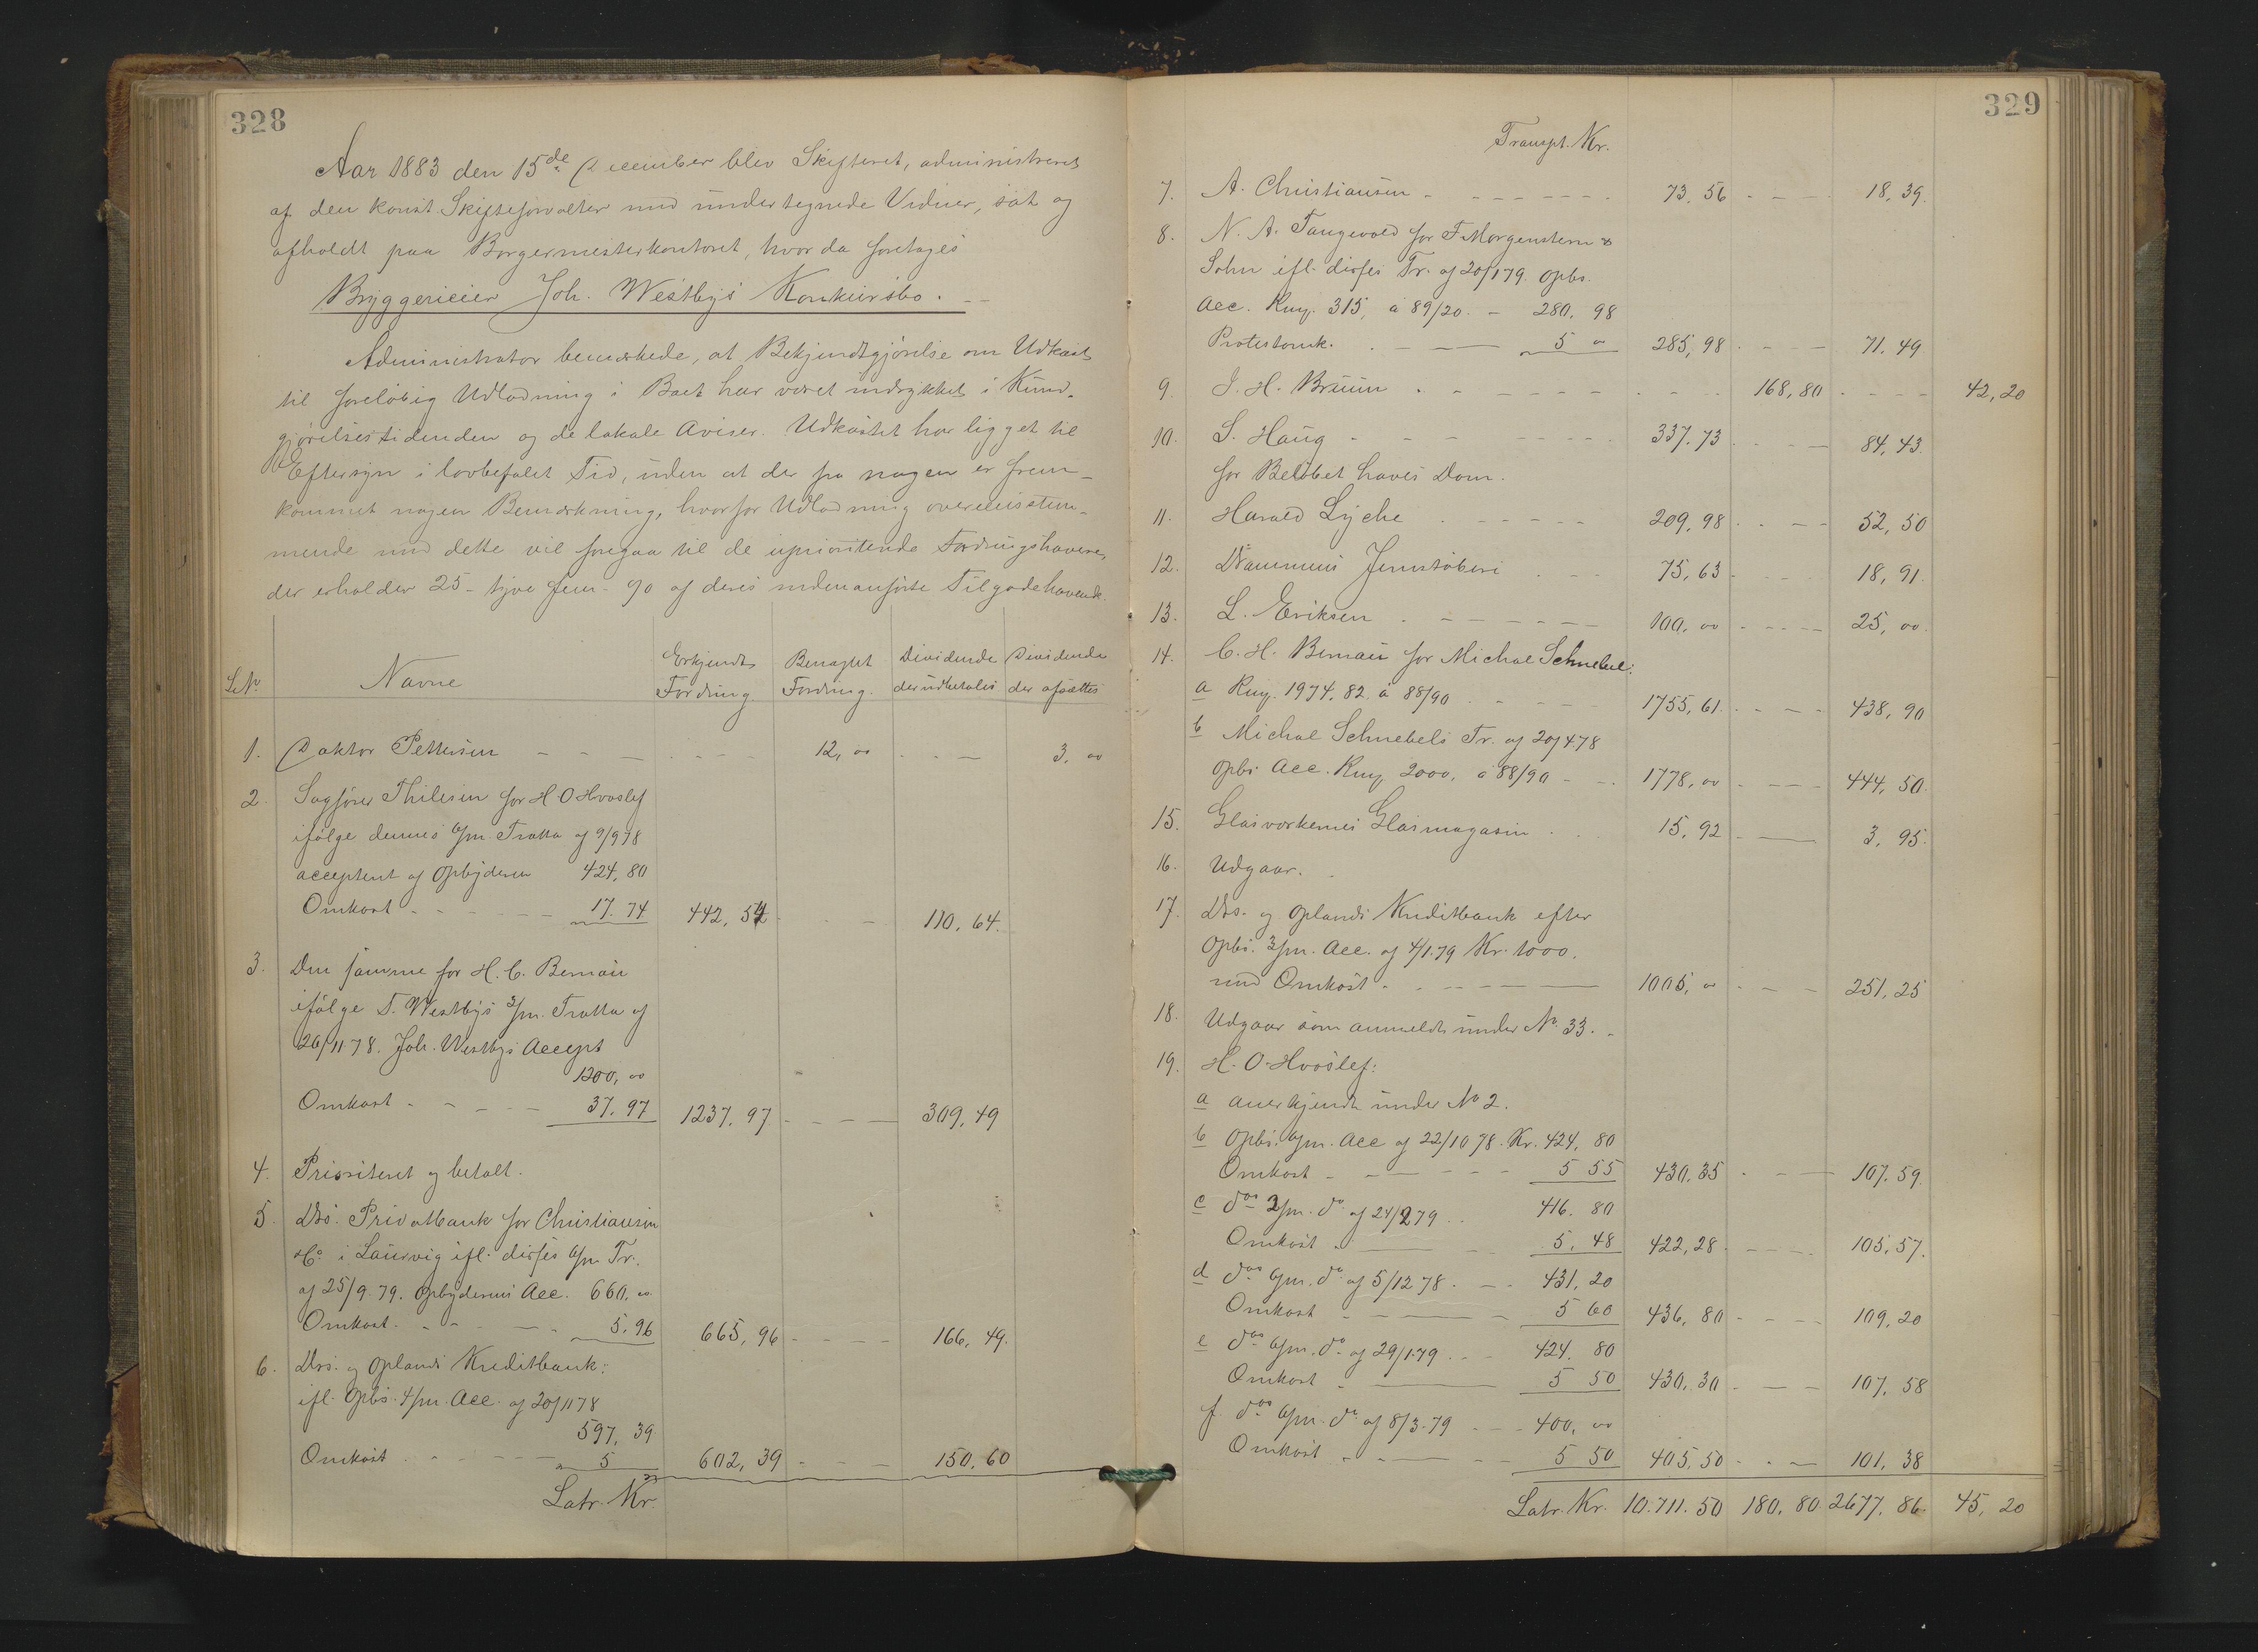 328
Aar 1883 den 15de December blev Skifteret, administreret
af den konst. Skifteforvalter med undertegnede Vidner, sat og
afholdt paa Borgermesterkontoret, hvor da foretoges
Bryggerieier Joh. Westbys Konkursbo.
Administrator bemærkede, at Bekjendtgjörelse om Udkast
til foreløbig Udlodning i Boet har været indrykket i Kund-
gjörelsestidenden og de lokale Aviser. Udkastet har ligget til
Eftersyn i lovbefalet Tid, uden at der fra nogen er frem-
kommet nogen Bemærkning, hvorfor Udlodning overensstem-
mende med dette vil foregaa til de uprioriterede Fordringshavere,
der erholder 25 - tyve fem - % af deres nedenanførte Tilgodehavende.
L.No. Navne Erkjendt Fordring Benægtet Fordring. Dividende der udbetales Dividende der afsættes
1. Doktor Pettersen 12, 00 3, 00
2. Sagfører Thilesen for H. O Hvoslef
ifølge dennes 6/m. Tratta af 9/9 78
accepteret af Opbyderen 424, 80
Omkost 17. 74 442, 54 110, 64.
3. Den samme for H. C. Bernau
ifølge T. Westbys 3/m. Tratta af
26/11 78. Joh. Westbys Accept
1200, 00
Omkost 37. 97 1237. 97 309, 49
4. Prioriteret og betalt.
5. Drs. Privatbank for Christiansen
& Co i Laurvig ifl. disses 6/m Tr.
af 25/9. 79. Opbyderens Acc. 660. 00
Omkost. 5. 96 665, 96 166, 49.
6. Drs. og Oplands Kreditbank:
ifl. Opbs. 4/m. Acc. af 20/11 78
597, 39
Omkost 5 602, 39 150. 60
Latr. Kr.
329
Transpt. Kr.
7. A. Christiansen 73, 56 18, 39.
8. N. A. Tangevald for F. Morgenstern &
Sohn ifl. disses Tr. af 20/1 79. Opbs.
Acc. Rmg. 315, a 89/20. - 280. 98
Protestomk. 5 00 285, 98 71. 49
9. J. H. Bruun 168, 80 42, 20
10. S. Haug 337. 73 84, 43.
for Beløbet haves Dom.
11. Harald Lyche 209, 98 52, 50
12. Drammens Jernstøberi 75, 63 18, 91.
13. L. Eriksen 100, 00 25, 00
14. C. H. Bernau for Michael Schnebel:
a Rmg. 1974. 82. a 88/90 1755, 61. 438, 90
b Michael Schnebels Tr. af 20/4 78
Opbs. Acc. Rmg. 2000, a 88/90 1778, 00 444, 50.
15. Glasværkernes Glasmagasin 15, 92 3, 95.
16. Udgaar.
17. Drs. og Oplands Kreditbank efter
Opbs. 3/m. Acc. af 4/1. 79 Kr. 1000.
med Omkost 1005, 00 251, 25
18. Udgaar som anmeldt under No. 33.
19. H. O. Hvoslef:
a anerkjendt under No 2.
b Opbs. 6/m. Acc af 22/10 78. Kr. 424, 80
Omkost 5 55 430, 35 107. 59.
c do 3/m. do af 24/2 79 416. 80
Omkost 5, 48 422, 28 105, 57.
d do 6/m. do af 5/12 78. 431, 20
Omkost 5 60 436, 80 109, 20
e do 6/m. do af 29/1. 79 424. 80
Omkost 5 50 430, 30 107, 58
f. do 6/m. do af 8/3. 79 400, 00
Omkost 5 50 405, 50 101, 38
Latr. Kr. 10.711. 50 180, 80 2677, 86 45, 20